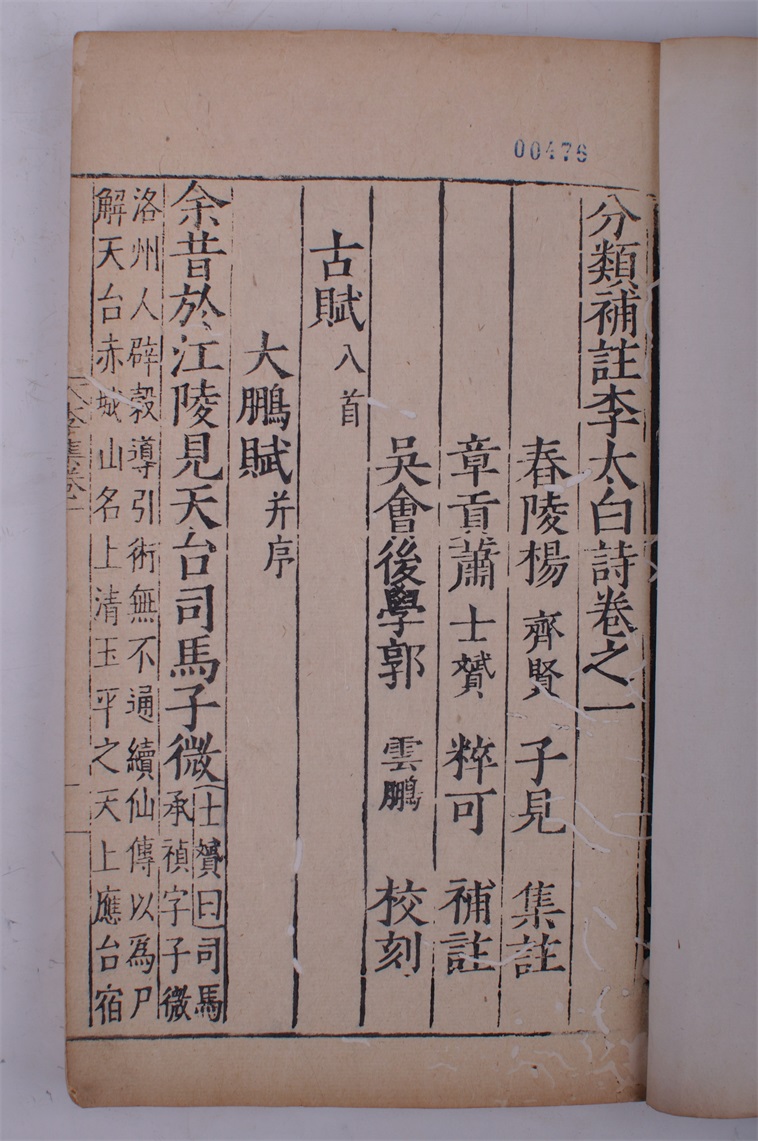 00476
分類補註李太白詩卷之一
舂陵楊 齊賢 子見 集註
章貢蕭 士贇 粹可 補註
吳會後學郭 雲鵬 校刻
古賦 八首
大鵬賦 并序
余昔於江陵見天台司馬子微 士贇曰司馬
承禎字子微
洛州人辟穀導引術無不通續仙傳以爲尸
解天台赤城山名上清玉平之天上應台宿